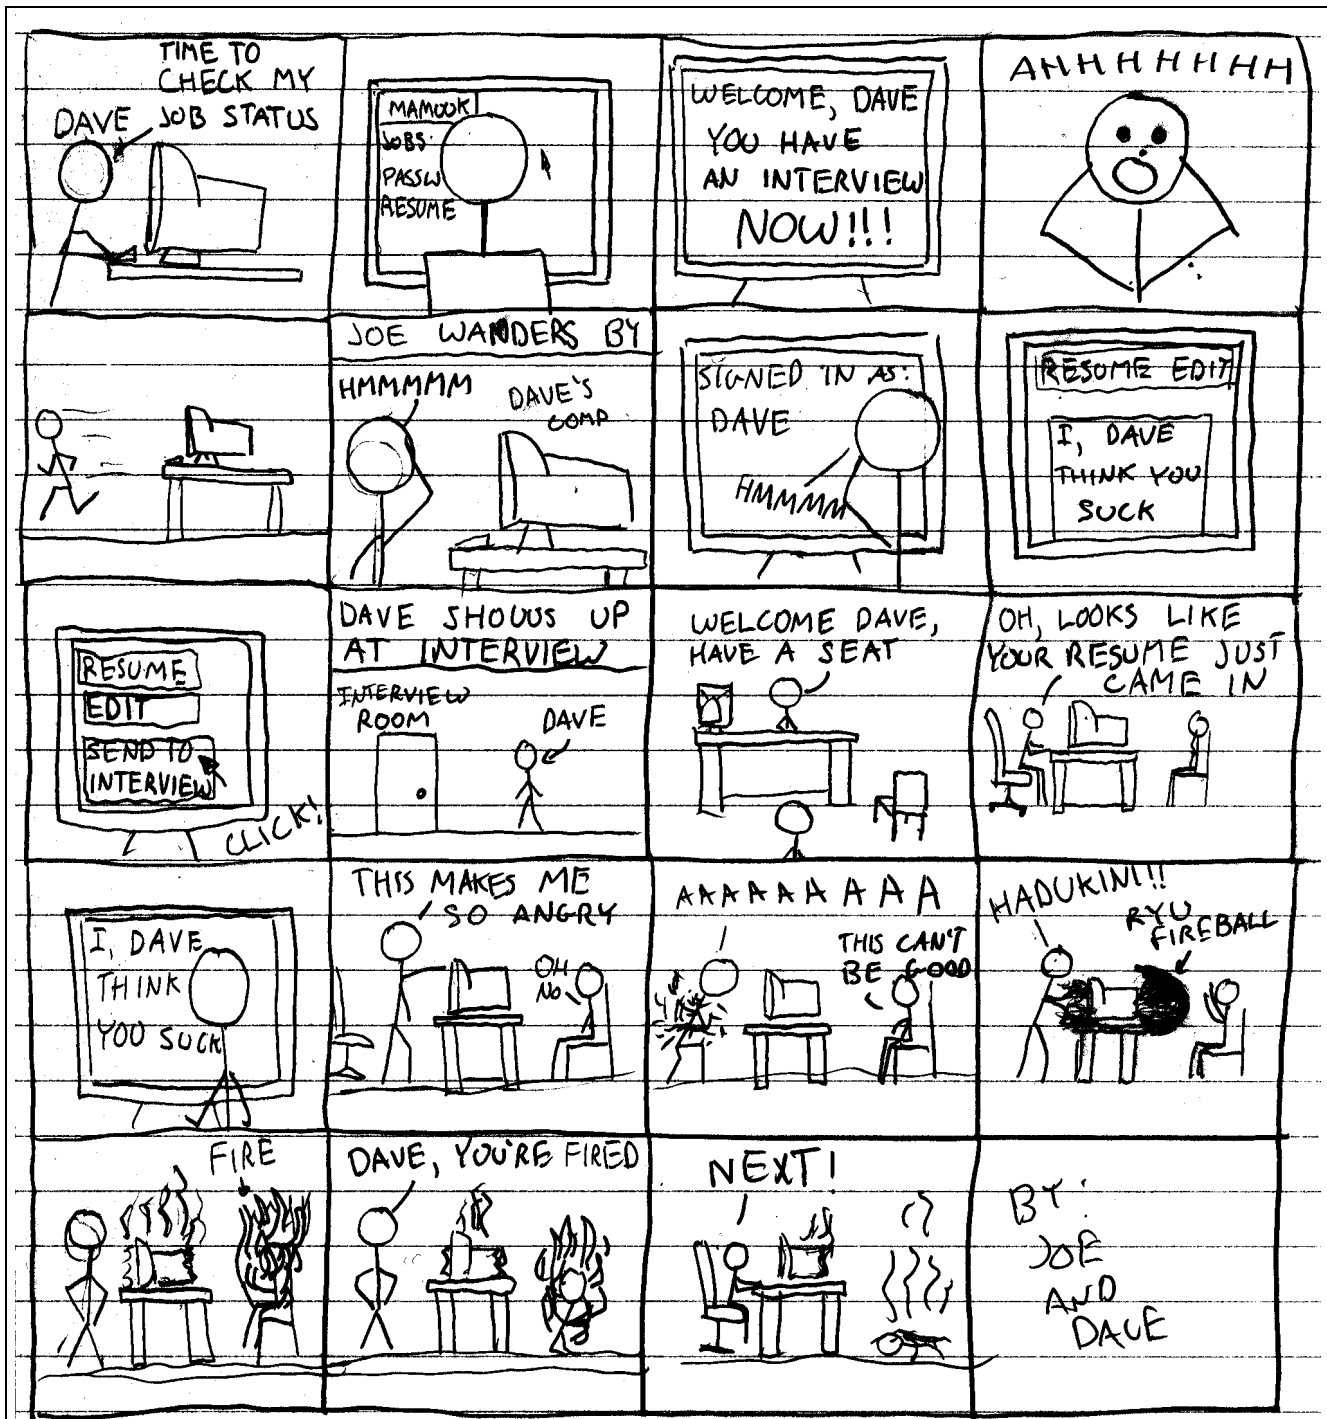 TIME TO
CHECK MY
JOB STATUS
DAVE
MAMOOK
JOBS
PASSW
RESUME
WELCOME, DAVE
YOU HAVE
AN INTERVIEW
NOW!!!
AHHHHHHH
JOE WANDERS BY
HMMMMM
DAVE'S
COMP
SIGNED IN AS:
DAVE
HMMMM
RESUME EDIT
I, DAVE
THINK YOU
SUCK
RESUME
EDIT
SEND TO
INTERVIEW
CLICK!
DAVE SHOWS UP
AT INTERVIEW
INTERVIEW
ROOM
DAVE
WELCOME DAVE,
HAVE A SEAT
OH, LOOKS LIKE
YOUR RESUME JUST
CAME IN
I, DAVE
THINK
YOU SUCK
THIS MAKES ME
SO ANGRY
OH
NO
AAAAAAAAA
THIS CAN'T
BE GOOD
HADUKIN!!!
RYU
FIREBALL
FIRE
DAVE, YOU'RE FIRED
NEXT!
BY:
JOE
AND
DAVE